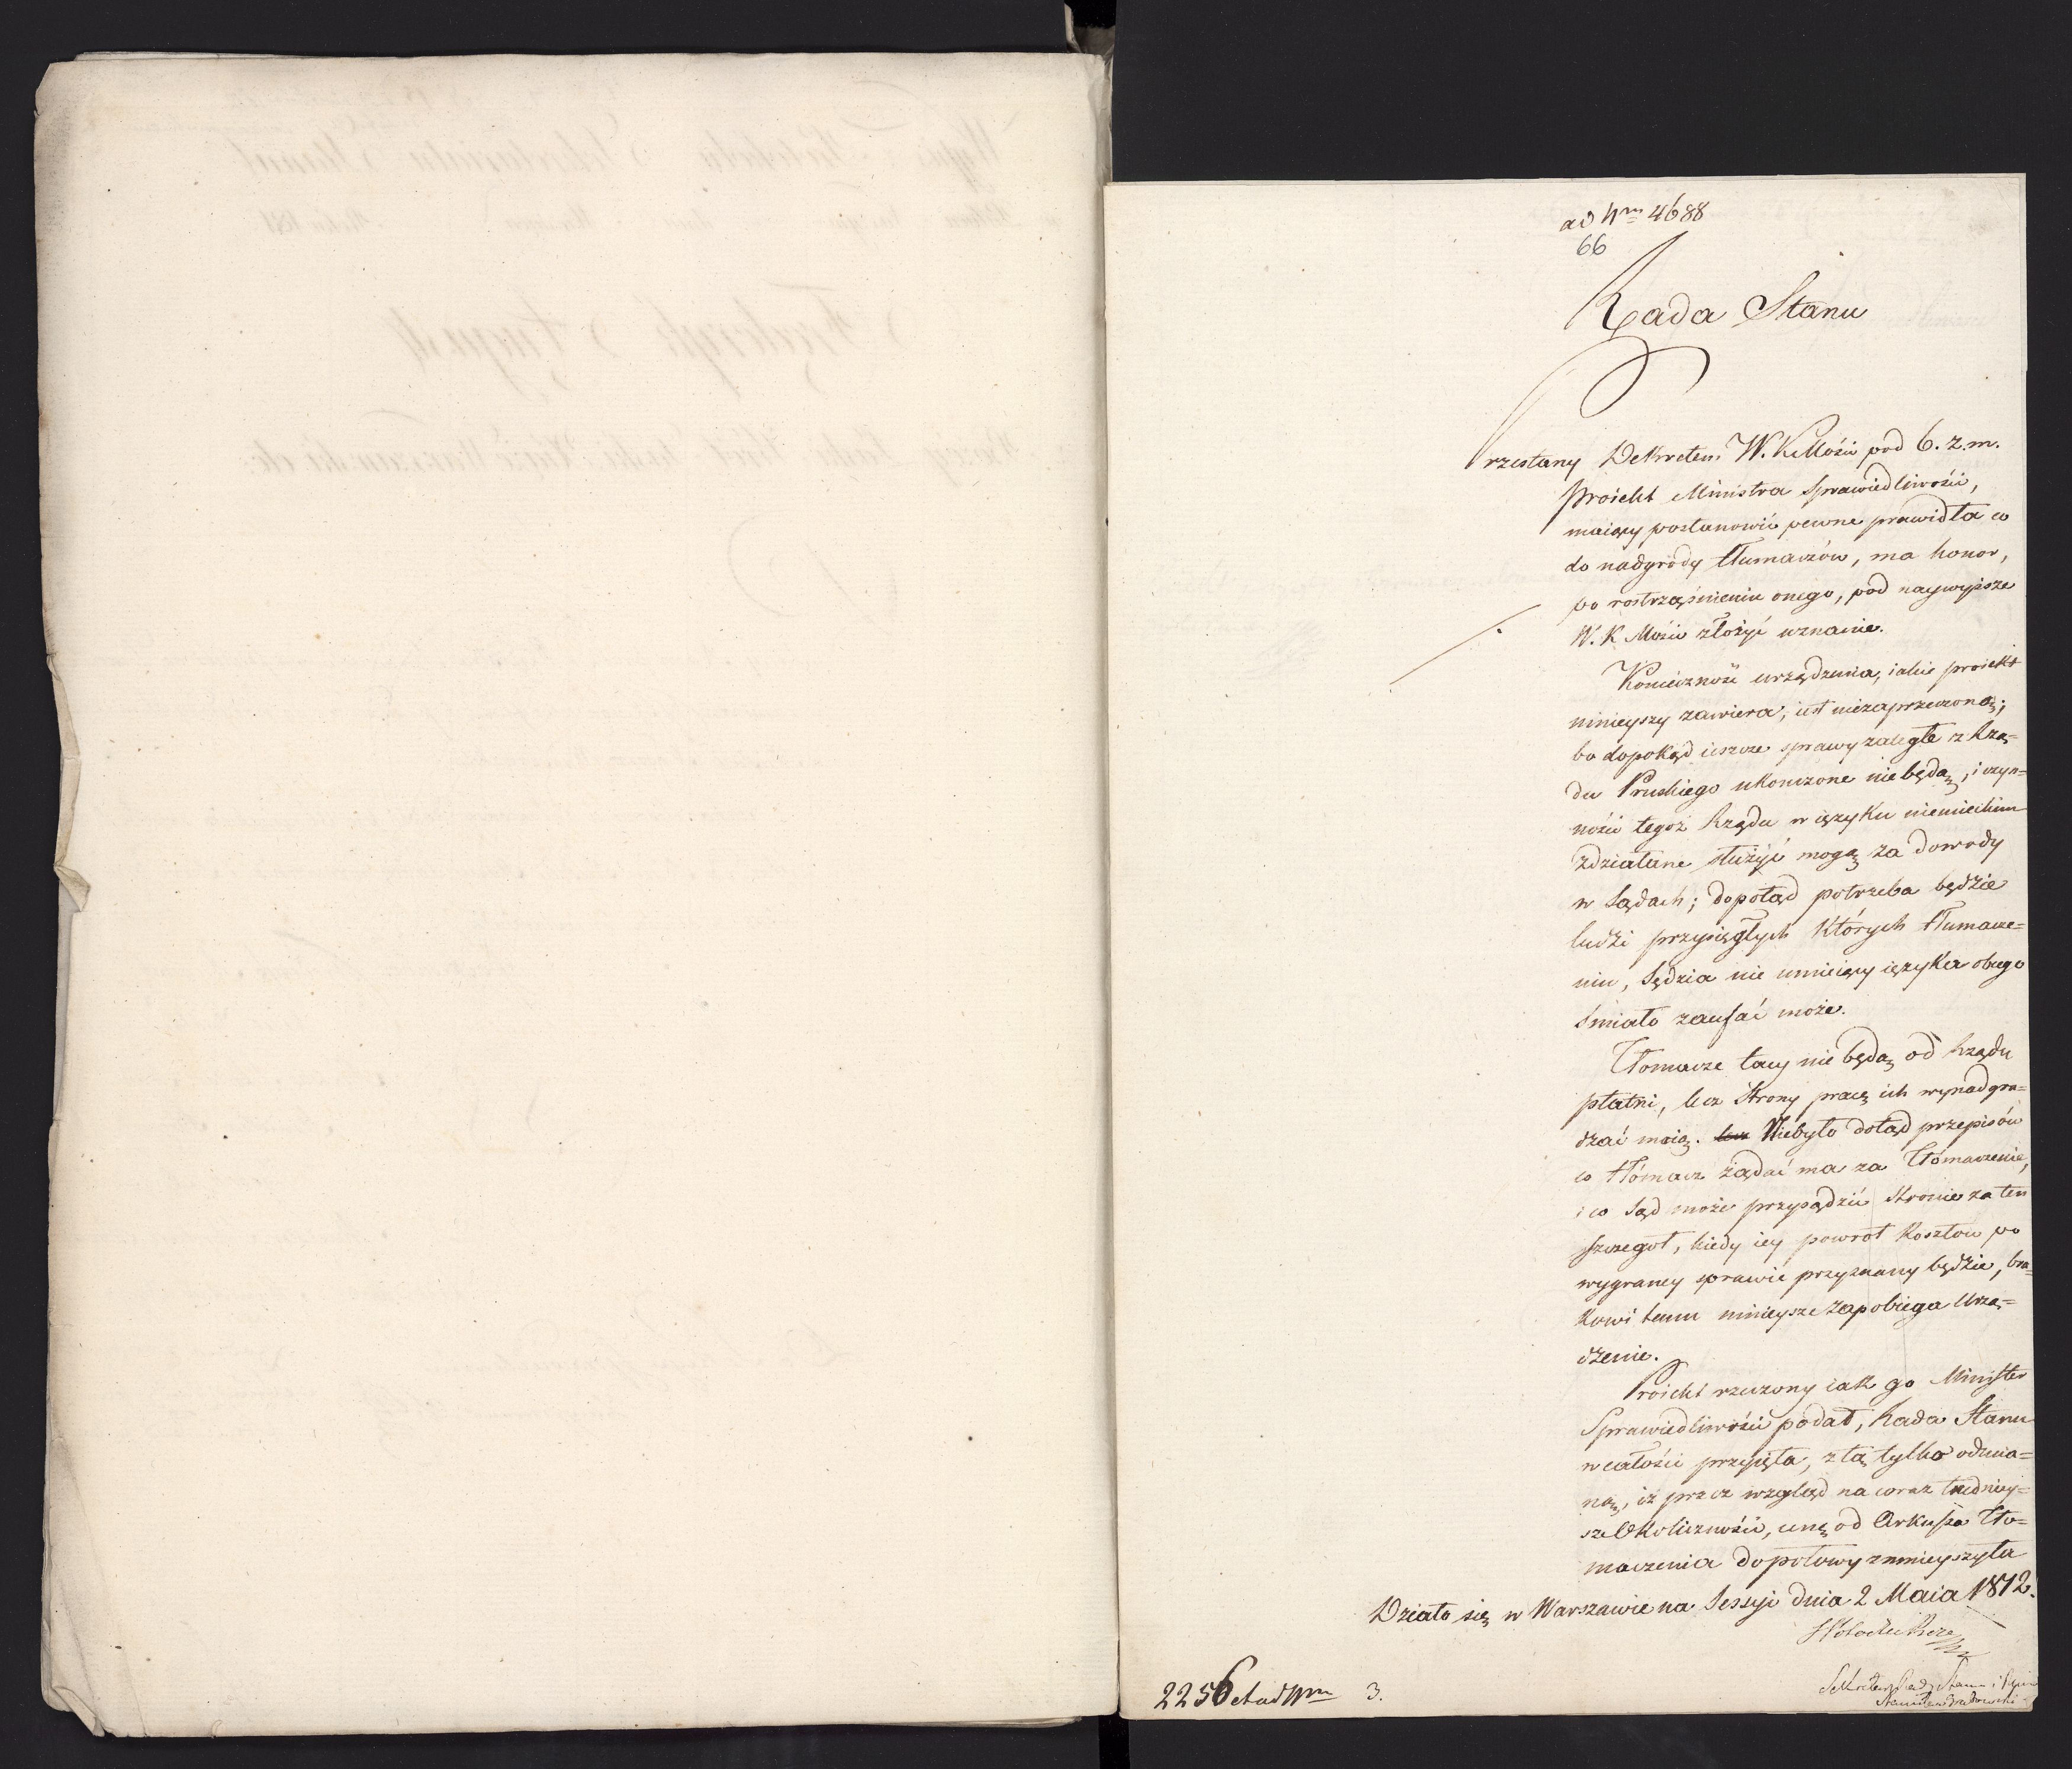 ad Nrm 4688
66
Rada Stanu
Przesłany Dekretem W. K Mości pod 6. z. m.
Proiekt Ministra Sprawiedliwości,
maiący postanowić pewne prawidła co
do nadgrody tłumaczów, ma honor,
po rostrząśnieniu onego, pod naywyższe
W. K Mości złożyć uznanie.
Konieczność urządzenia, iakie proiekt
ninieyszy zawiera, iest niezaprzeczoną;
bo dopokąd ieszcze sprawy zaległe z Rzą=
du Pruskiego ukończone nie będą, i czyn=
ności tegoż Rządu w ięzyku niemieckim
zdziałane służyć mogą za dowody
w Sądach; dopotąd potrzeba będzie
ludzi przysięgłych których tłumacze=
niu, Sędzia nie umieiący ięzyka obcego
śmiało zaufać może.
Tłomacze tacy nie będą od Rządu
płatni, lecz Strony pracę ich wynadgra=
dzać maią. lecz Niebyło dotąd przepisów
co tłómacz żądać ma za tłómaczenie,
i co Sąd może przysądzić Stronie za ten
szczegół, kiedy iey powrot kosztow po
wygraney sprawie przyznany będzie, bra=
kowi temu ninieysze zapobiega Urzą=
dzenie.
Proiekt rzeczony iak go Minister
Sprawiedliwości podał, Rada Stanu
w całości przyięła, z tą tylko odmia=
ną, iż przez wzgląd na coraz trudniey=
sze Okoliczności, cenę od Arkusza tło=
maczenia do połowy zmnieyszyła
Działo się w Warszawie na Sessyi dnia 2 Maia 1812.
Sekretarz Rady Stanu i
2256 et ad Nrm 3.